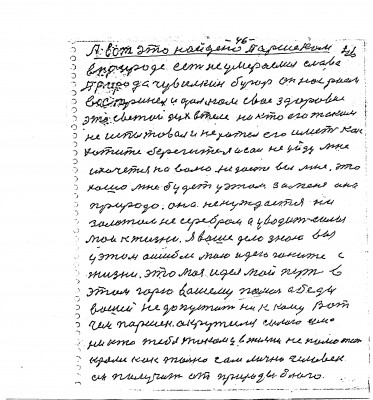 -46-
А вот это найдено Паршеком
в природе есть неумераемая слава
Природа чувилкин бугор он нас раем
воспринел и должном свое здоровье
это светой дух в теле никто его таким
не испытовал и нехател его иметь как
хотите берегитеся сам не уйду мне
хочется на волю недаете вы мне. это
хошо мне будет у этом за меня она
природа. она. ненуждается ни
золотом не серебром а уводит
моя к жизни. Я ваше дело знаю вы
у этом ошиблись мою идею гоните с
жизни. это моя идея мой путь в
этом горю вашему а беду
вашей недопустит ни к кому Вот
чем паршек. окружился
никто тебе таком у жизни не поможет
кроме как только сам лично человек
он получит от природы благо.